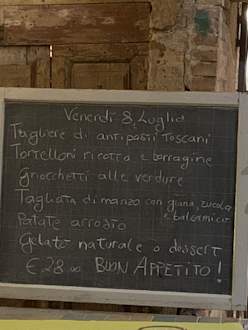 Venerdi 8 Luglio
Tagliere di antipasti Toscani
Tortelloni ricotta e borragine
gnocchetti alle verdure
Tagliata di manzo con grana, rucola
e balsamico
Patate arrosto
Gelato naturale o dessert
€ 28.00 BUON APPETITO!